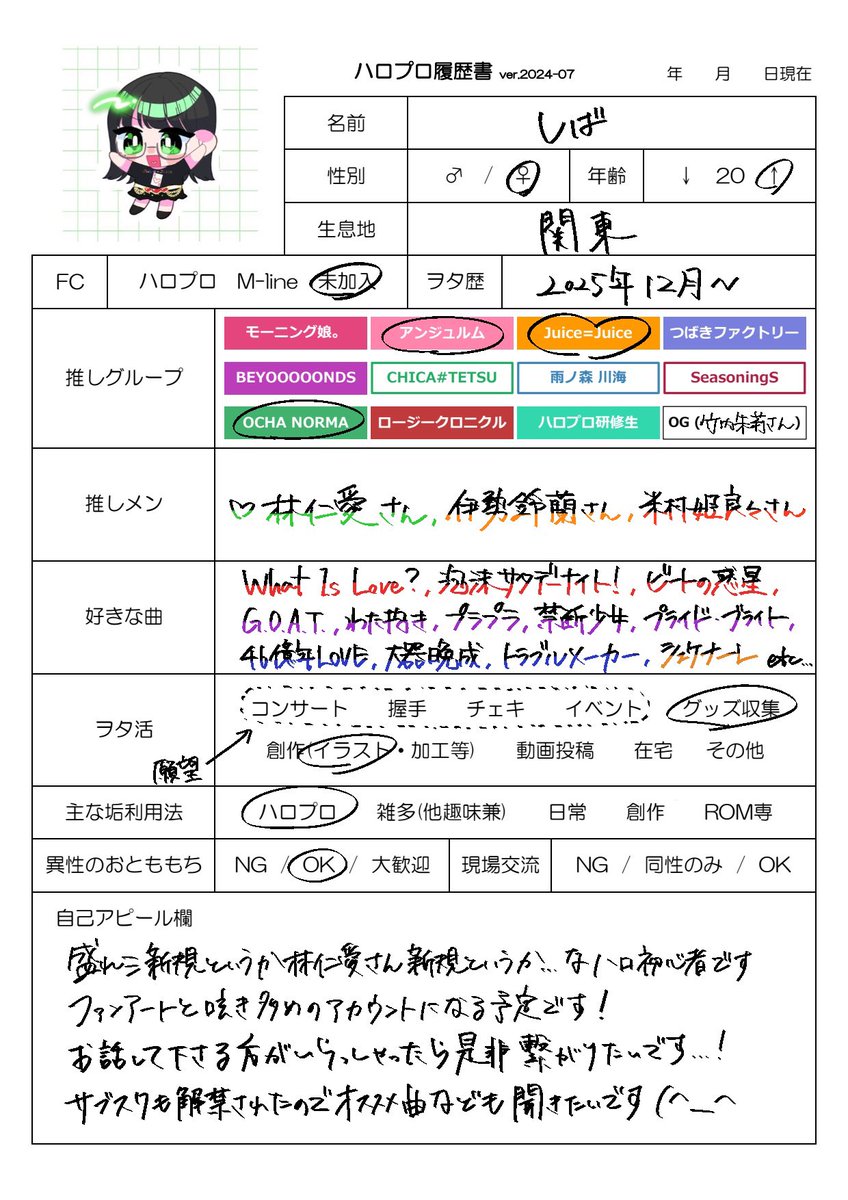 ハロプロ履歴書 ver.2024-07
年 月 日現在
名前 しば
性別 ♂ / ♀ 年齢 ↓ 20 ↑
生息地 関東
FC ハロプロ M-line 未加入 ヲタ歴 2025年12月〜
推しグループ
モーニング娘。 アンジュルム Juice=Juice つばきファクトリー
BEYOOOOONDS CHICA#TETSU 雨ノ森 川海 SeasoningS
OCHA NORMA ロージークロニクル ハロプロ研修生 OG (竹内朱莉さん)
推しメン
♡林仁愛さん, 伊勢鈴蘭さん, 米村姫良々さん
好きな曲
What Is Love?, 泡沫サタデーナイト!, ビートの惑星,
G.O.A.T., わた抱き, プラプラ, 禁断少年, プライド・ブライト,
46億年LOVE, 大器晩成, トラブルメーカー, シェケナーレ etc...
ヲタ活
コンサート 握手 チェキ イベント グッズ収集
創作(イラスト・加工等) 動画投稿 在宅 その他
願望
主な垢利用法 ハロプロ 雑多(他趣味兼) 日常 創作 ROM専
異性のおとももち NG / OK / 大歓迎 現場交流 NG / 同性のみ / OK
自己アピール欄
盛れ!ミ新規というか林仁愛さん新規というか…なハロ初心者です
ファンアートと呟き多めのアカウントになる予定です!
お話して下さる方がいらっしゃったら是非繋がりたいです…!
サブスクも解禁されたのでオススメ曲なども聞きたいです(^_^